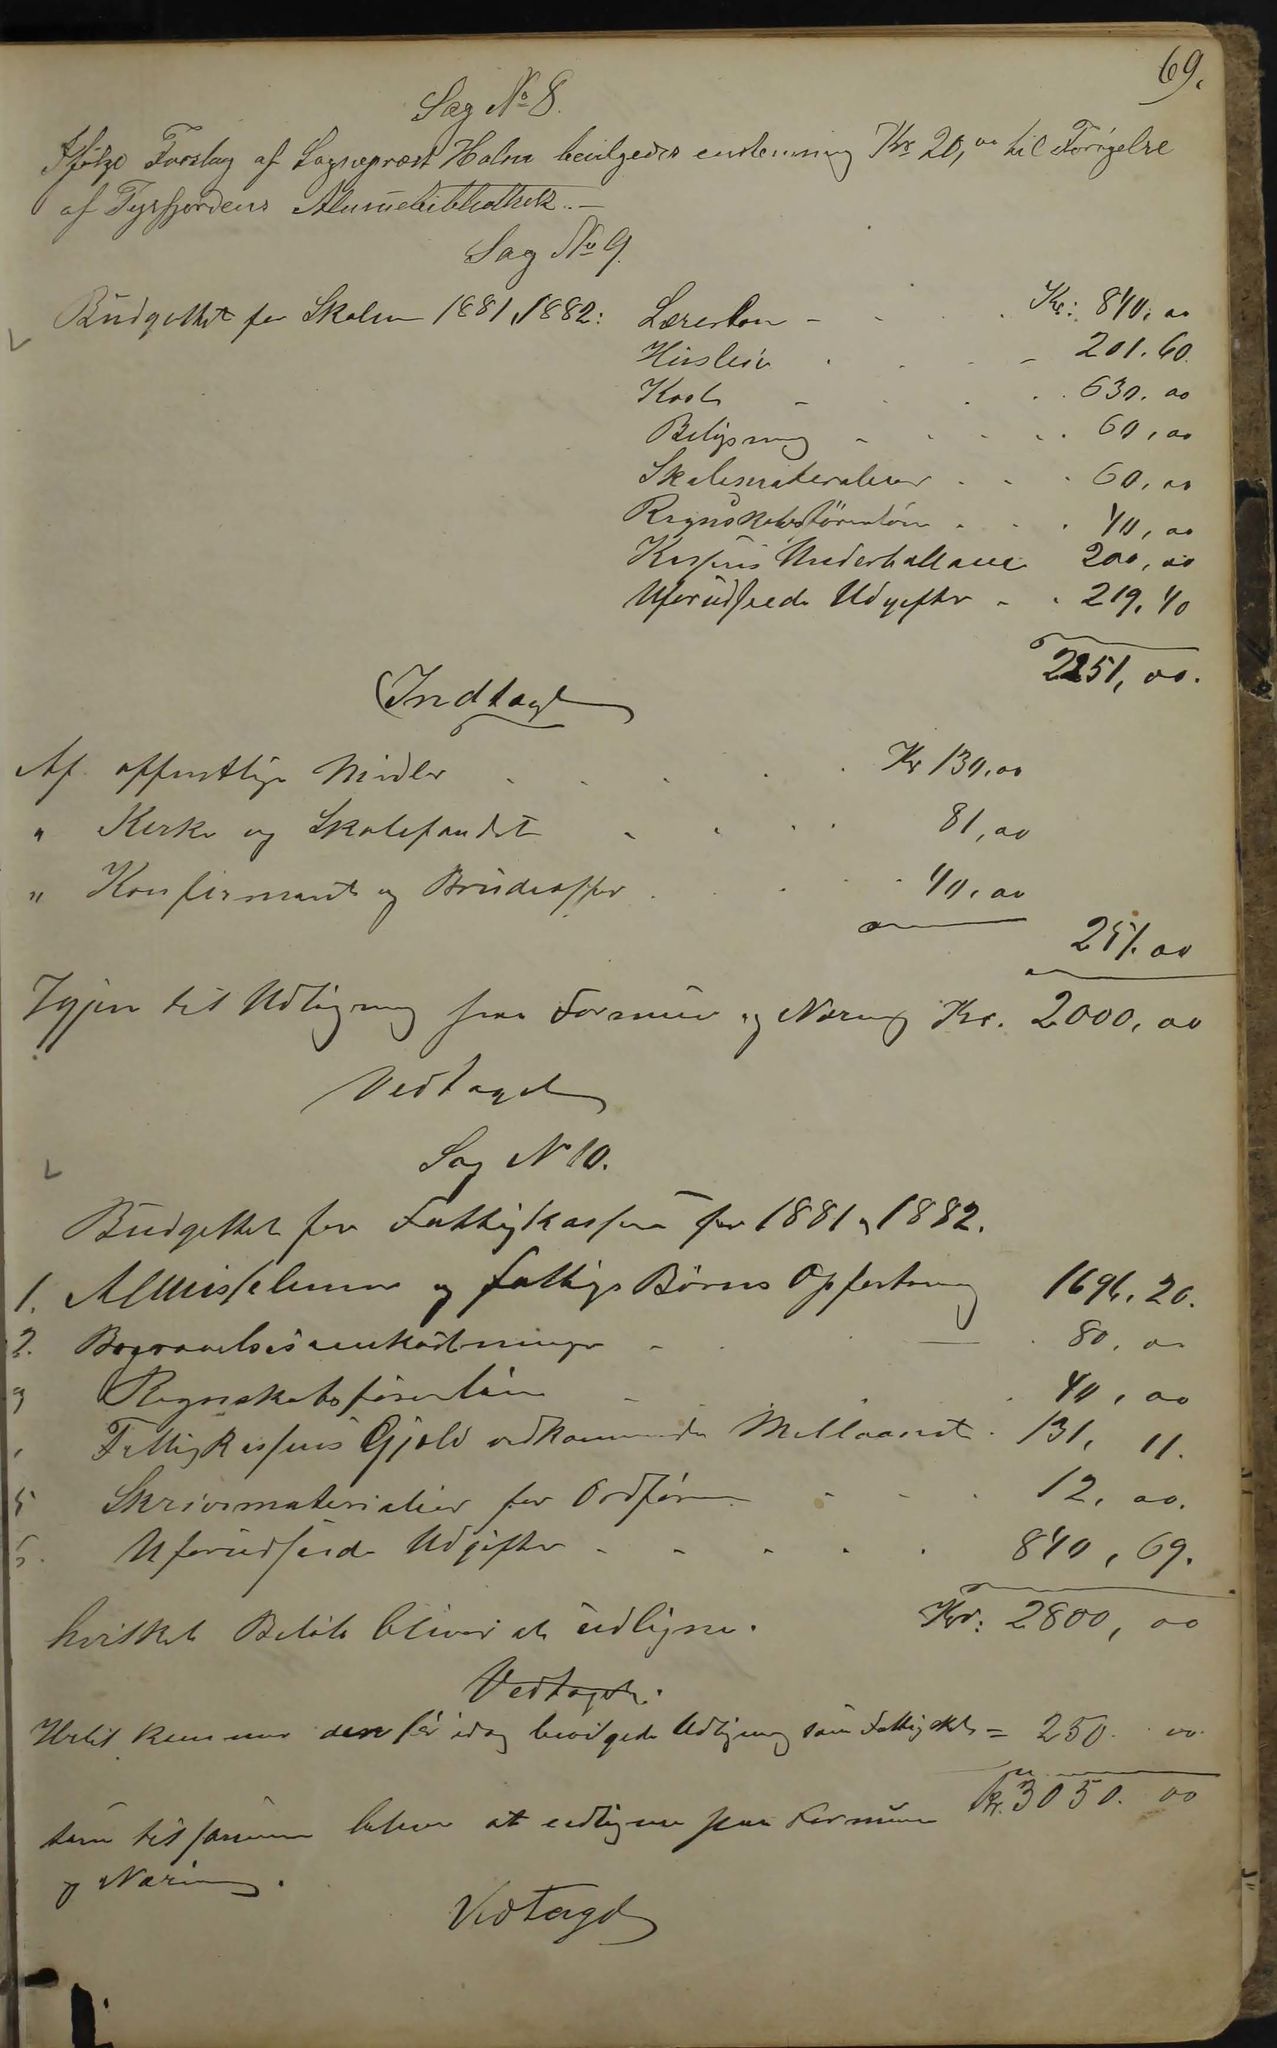 69.
Sag No 8.
Ifølge Forslag af Sognepræst Holm bevilgedes enstemmig Kr 20,00 til Forøgelse
af Tysfjordens Almuebibliothek. —
Sag No 9.
Budgettet for Skolen 1881, 1882: Lærerløn - . . Kr: 840,00
Husleie . . - 201.60.
Kost - . . 630.00
Belysning - . . . 60,00
Skolematerialier . . . 60,00
Regnskabsførerløn . . . 40,00
Kassens Underballance 200,00
Uforudseede Udgifter - . 219.40
2251,00.
Indtægt
Af offentlige Midler . . . . Kr 130,00
" Kirke og Skolefondet . . . . 81,00
" Konfirmant og Brudeoffer . . . . 40,00
251.00
Igjen til Udligning paa Formue og Næring Kr. 2000,00
Vedtaget
Sag N 10.
Budgettet for Fattigkassen for 1881, 1882.
1. Almisselemmer og fattige Børns Opfostring 1696.20.
2. Begravelsesomkostninger - . — . 80.00
3 Regnskabsførerløn - . . . 40,00
Fattigkassens Gjæld vedkommende 131, 11.
5 Skrivematerialier for Ordføreren - - . 12,00.
6. Uforudseede Udgifter - - . . . 840,69.
hvilket Beløb bliver at udligne. Kr: 2800,00
Vedtaget.
Hertil kommer den før idag bevilgede Udligning som Fattigskat = 250. 00
Kr. 3050. 00
som tilsammen bliver at udligne paa Formue
og Næring.
Vedtaget